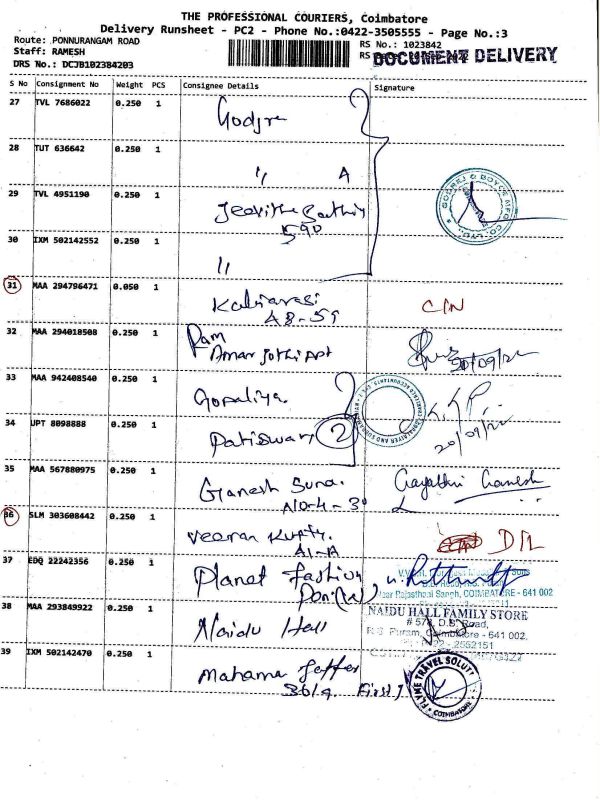 THE PROFESSIONAL COURIERS, Coimbatore
Delivery Runsheet - PC2 - Phone No.:0422-3505555 - Page No.:3
Route: PONNURANGAM ROAD
Staff: RAMESH
DRS No.: DCJB102384203
RS No.: 1023842
DOCUMENT DELIVERY
S No Consignment No Weight PCS Consignee Details Signature
27 TVL 7686022 0.250 1 Godjre
28 TUT 636642 0.250 1 " A
29 TVL 4951190 0.250 1
590
30 IXM 502142552 0.250 1 "
GODREJ & BOYCE MFG. CO. LTD.
31 MAA 294796471 0.050 1 Kaliarasi C/N
A8-59
32 MAA 294018508 0.250 1 Ram
Amar Jothi Apt 20/09/22
33 MAA 942408540 0.250 1 Gopaliya
34 UPT 8098888 0.250 1 Patiswari 2 K. KP
20/09/22
35 MAA 567880975 0.250 1 Ganesh Suna. Gayathri Ganesh
A10-4-
36 SLM 303608442 0.250 1 Veeran Kutty. D/L
A1-A
37 EDQ 22242356 0.250 1 Planet Fashion
Rajasthani Sangh, COIMBATORE - 641 002
38 MAA 293849922 0.250 1 Naidu Hall
NAIDU HALL FAMILY STORE
# 573, D.B. Road,
R.S. Puram, Coimbatore - 641 002.
39 IXM 502142470 0.250 1 Mahama Jaffer
First
FLYME TRAVEL SOLUT
COIMBATORE